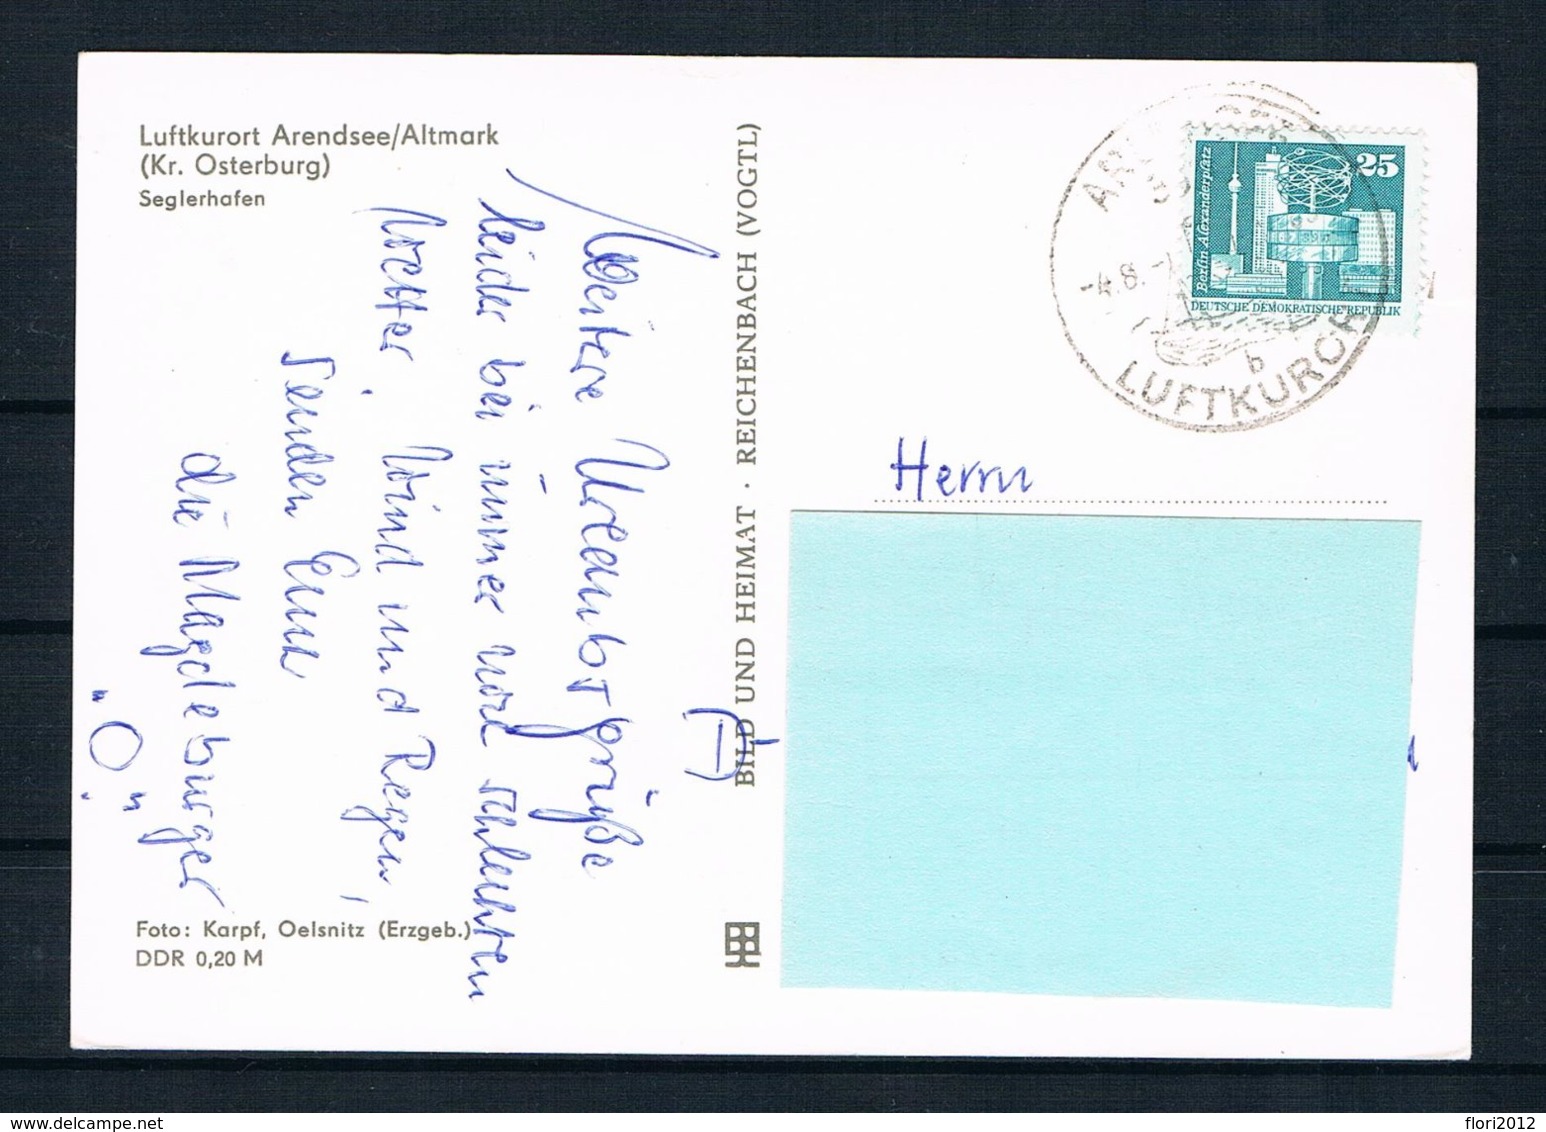 Luftkurort Arendsee/Altmark
(Kr. Osterburg)
Seglerhafen
Weitere Urlaubsgrüße
leider bei immer noch schlechtem
Wetter. Wind und Regen,
senden Euch
die Magdeburger
"O"
Foto: Karpf, Oelsnitz (Erzgeb.)
DDR 0,20 M
BILD UND HEIMAT · REICHENBACH (VOGTL)
25
Berlin-Alexanderplatz
DEUTSCHE DEMOKRATISCHE REPUBLIK
-4.8.
b
LUFTKURORT
Herrn
flori2012